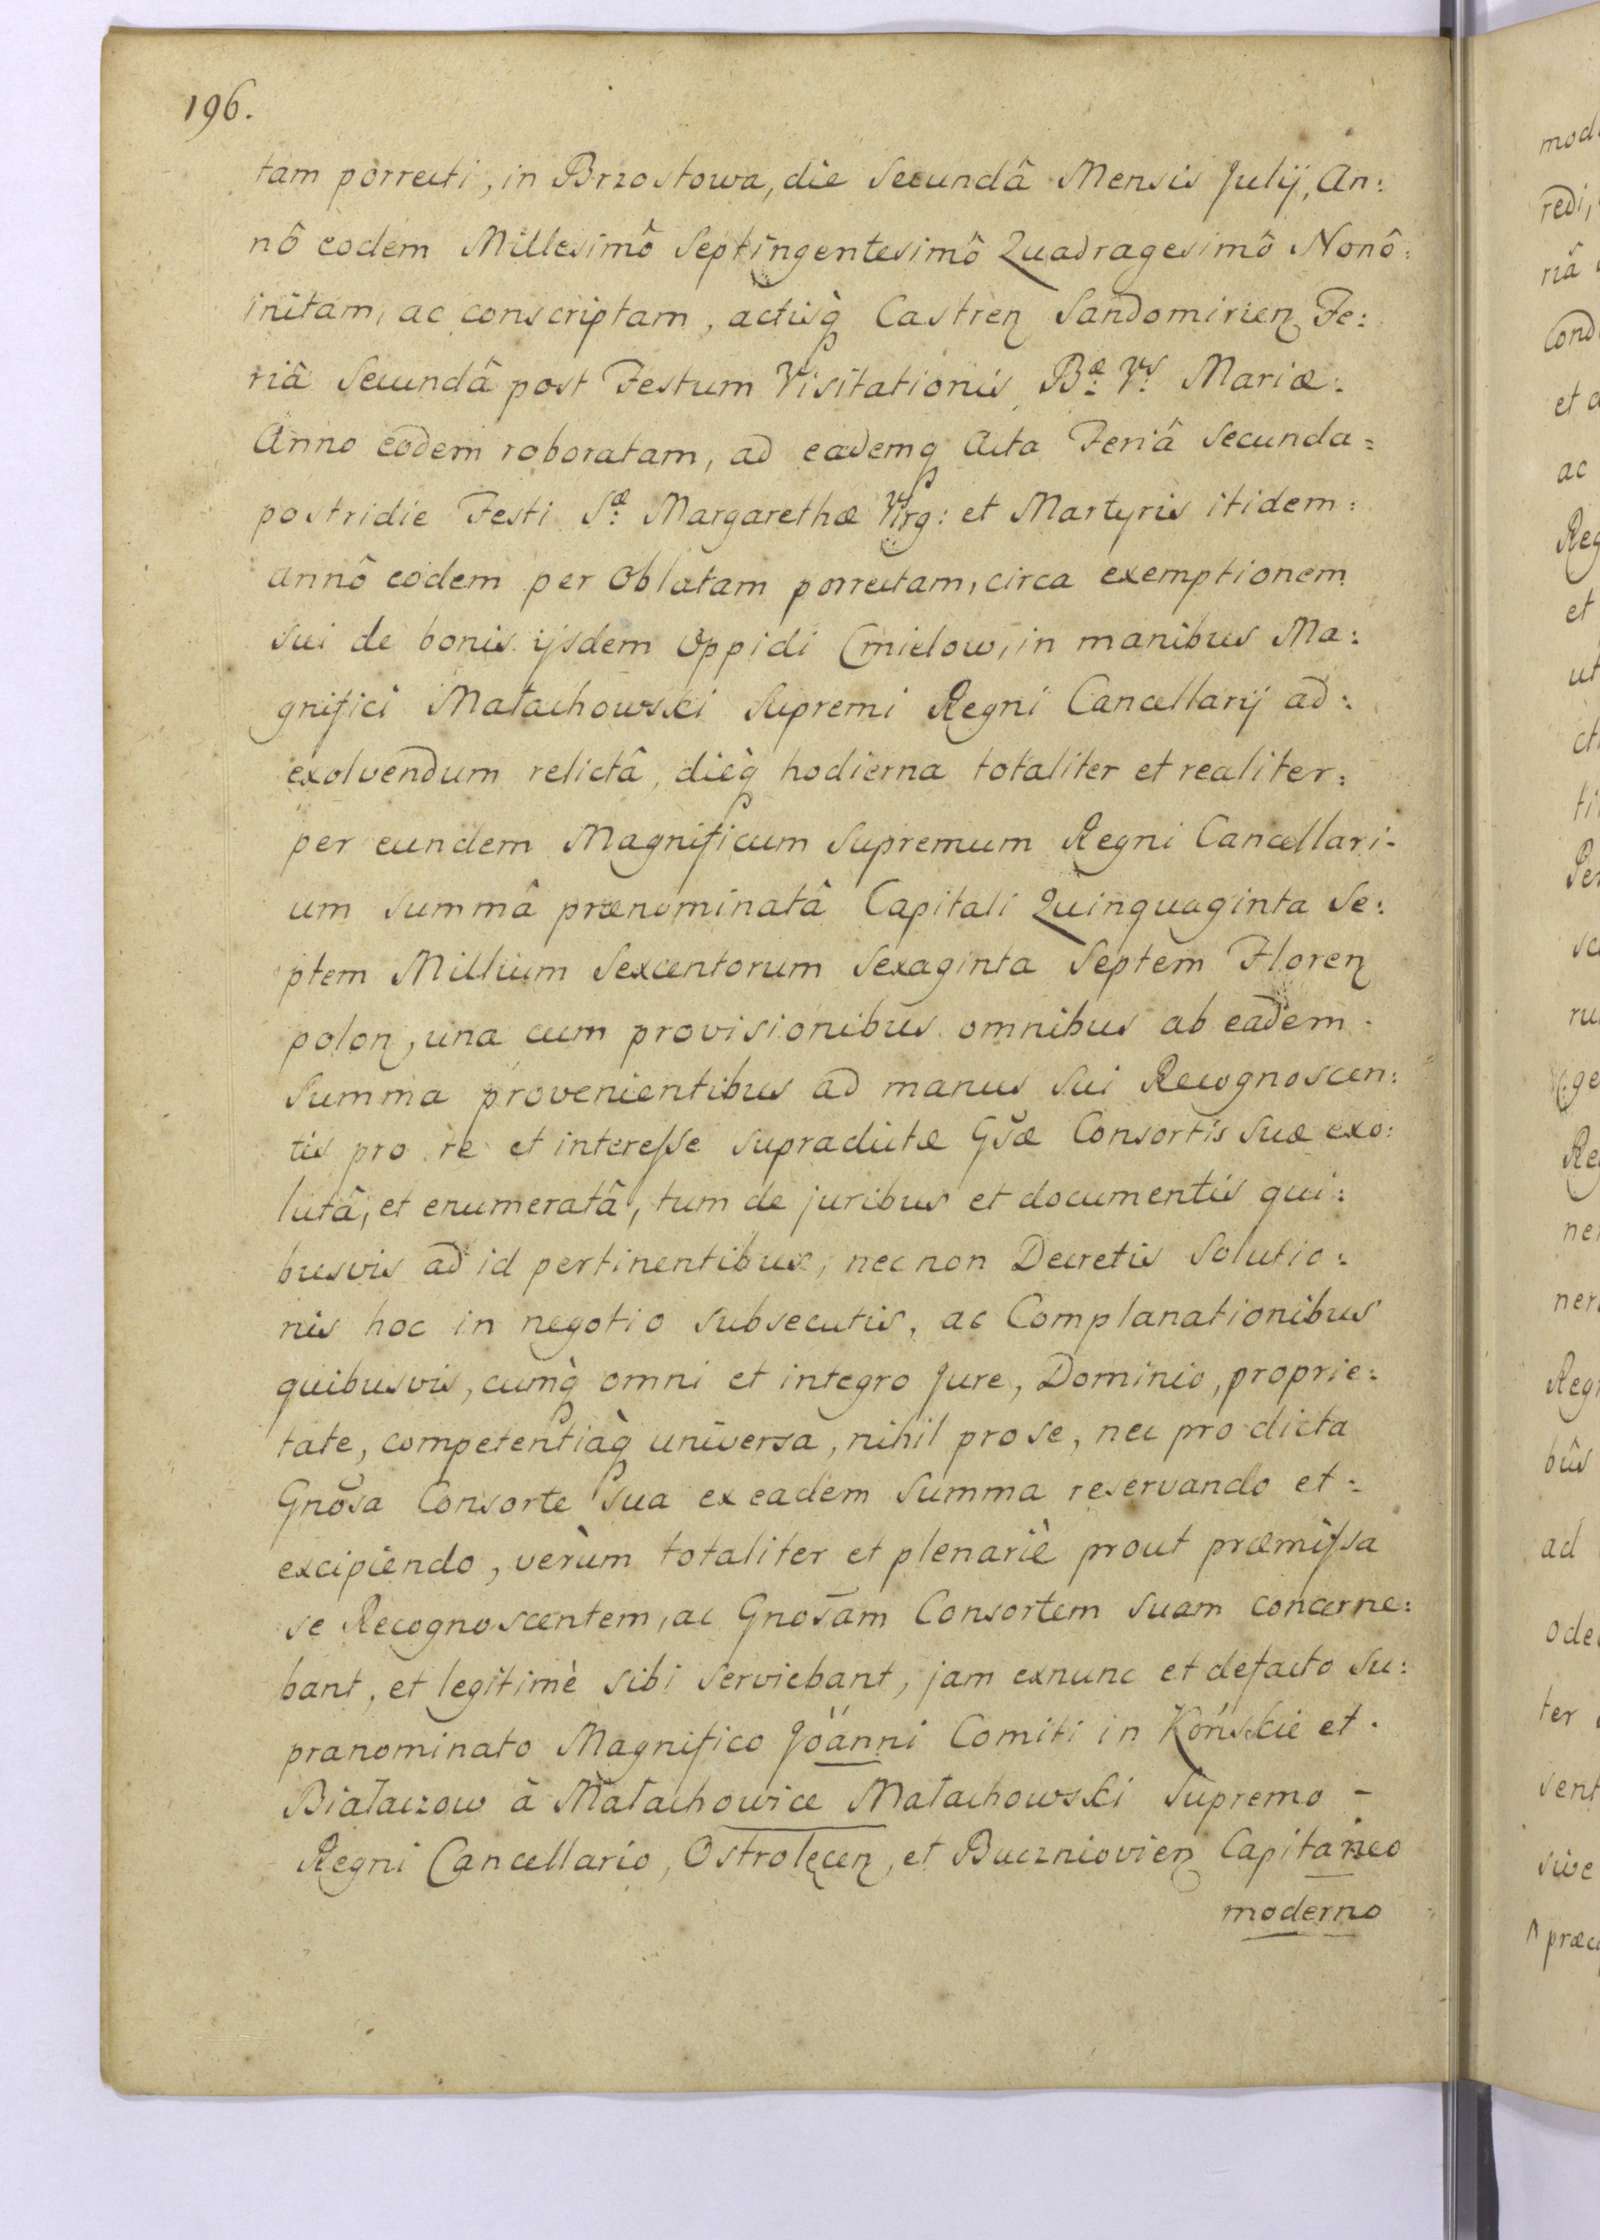 196.
tam porrecti, in Brzostowa, die Secundâ Mensis Julij, An:
nô eodem Millesimô Septingentesimô Quadragesimô Nonô:
initam, ac conscriptam, actisq̀ Castreñ Sandomirieñ Fe:
riâ Secundâ post Festum Visitationis Bæ: Vs: Mariæ:
Anno eodem roboratam, ad eademq Acta Feriâ Secunda =
postridie Festi Sæ: Margarethæ Virg: et Martyris itidem:
annô eodem per Oblatam porrectam, circa exemptionem
sui de bonis ijsdem Oppidi Cmielow, in manibus Ma:
gnifici Małachowski Supremi Regni Cancellarij ad:
exolvendum relictâ, dieq̀ hodierna totaliter et realiter:
per eundem Magnificum Supremum Regni Cancellari-
um summâ prænominatâ Capitali Quinquaginta Se:
ptem Millium Sexcentorum Sexaginta Septem Floreñ
poloñ, una cum provisionibus omnibus ab eadem:
Summa provenientibus ad manus sui Recognoscen:
tis pro re et interesse supradictæ Gsæ Consortis suæ exo:
lutâ, et enumeratâ, tum de juribus et documentis qui:
busvis ad id pertinentibus, nec non Decretis Solutio:
nis hoc in negotio subsecutis, ac Complanationibus
quibusvis, cumq̀ omni et integro Jure, Dominio, proprie:
tate, competentiaq̀ universa, nihil pro se, nec pro dicta
Gnosa Consorte sua ex eadem summa reservando et:
excipiendo, verùm totaliter et plenariè prout præmissa
se Recognoscentem, ac Gnosam Consortem suam concerne:
bant, et legitimè sibi serviebant, jam exnunc et defacto su:
pranominato Magnifico Joänni Comiti in Końskie et.
Białaczow à Małachowice Małachowski Supremo -
Regni Cancellario, Ostrołęceñ, et Buczniovieñ Capitaneo
moderno